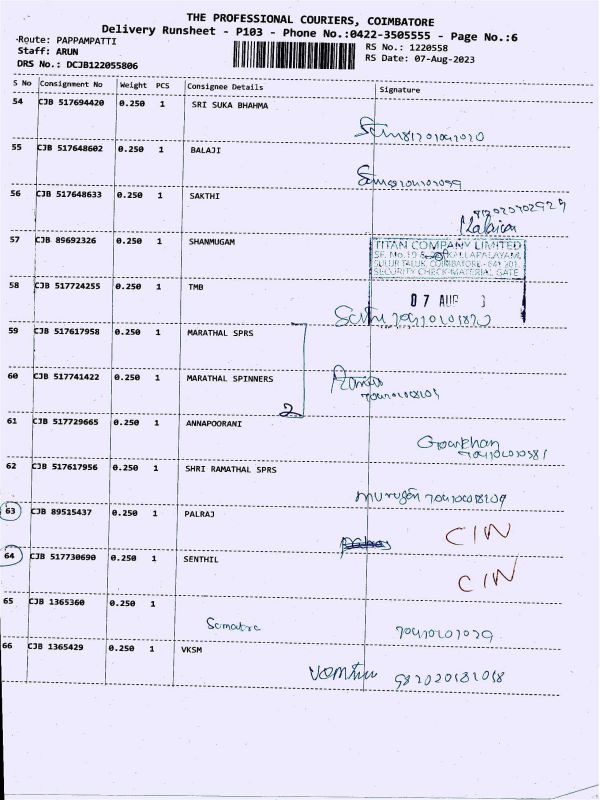 THE PROFESSIONAL COURIERS, COIMBATORE
Delivery Runsheet - P103 - Phone No.:0422-3505555 - Page No.:6
Route: PAPPAMPATTI
RS No.: 1220558
Staff: ARUN
RS Date: 07-Aug-2023
DRS No.: DCJB122055806
S No Consignment No Weight PCS Consignee Details Signature
54 CJB 517694420 0.250 1 SRI SUKA BHAHMA
55 CJB 517648602 0.250 1 BALAJI
56 CJB 517648633 0.250 1 SAKTHI
57 CJB 89692326 0.250 1 SHANMUGAM
TITAN COMPANY LIMITED
SECURITY CHECK-MATERIAL GATE
07 AUG
58 CJB 517724255 0.250 1 TMB
59 CJB 517617958 0.250 1 MARATHAL SPRS
60 CJB 517741422 0.250 1 MARATHAL SPINNERS
2
61 CJB 517729665 0.250 1 ANNAPOORANI
62 CJB 517617956 0.250 1 SHRI RAMATHAL SPRS
murugan
63 CJB 89515437 0.250 1 PALRAJ
CIN
64 CJB 517730690 0.250 1 SENTHIL
CIN
65 CJB 1365360 0.250 1
66 CJB 1365429 0.250 1 VKSM